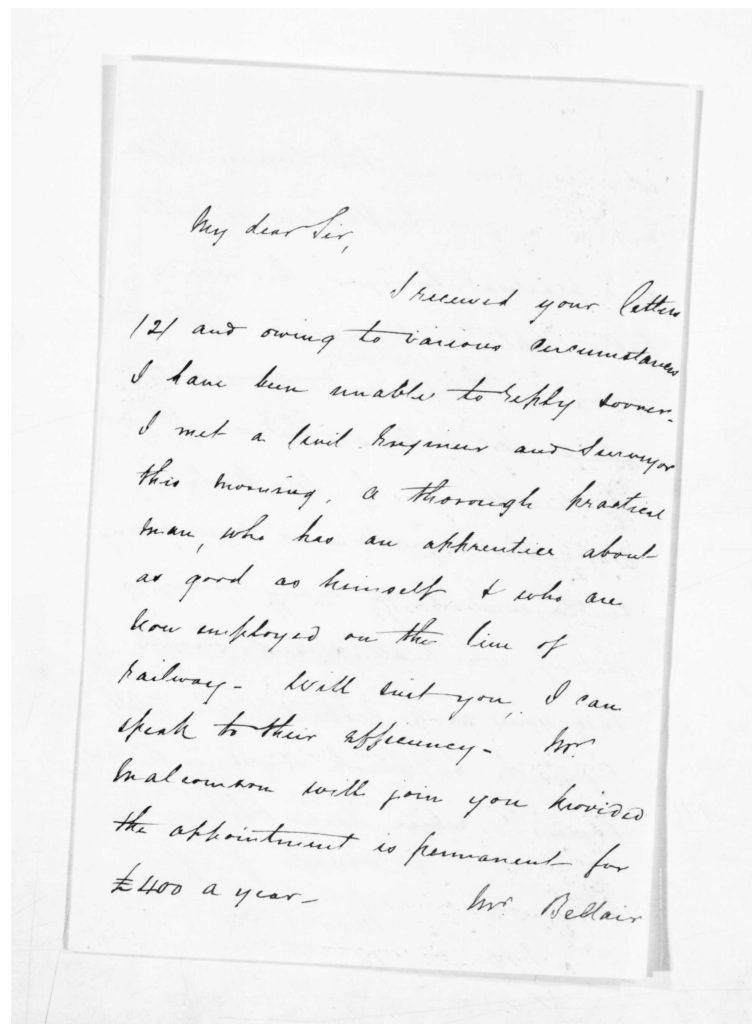 My dear Sir,
I received your letters
(2) and owing to various circumstances
I have been unable to reply sooner.
I met a Civil Engineer and Surveyor
this morning, a thorough practical
man, who has an apprentice about
as good as himself & who are
now employed on the line of
railway - will suit you, I can
speak to their efficiency - Mr.
Malcomson will join you provided
the appointment is permanent for
£400 a year -
Mr. Bellair